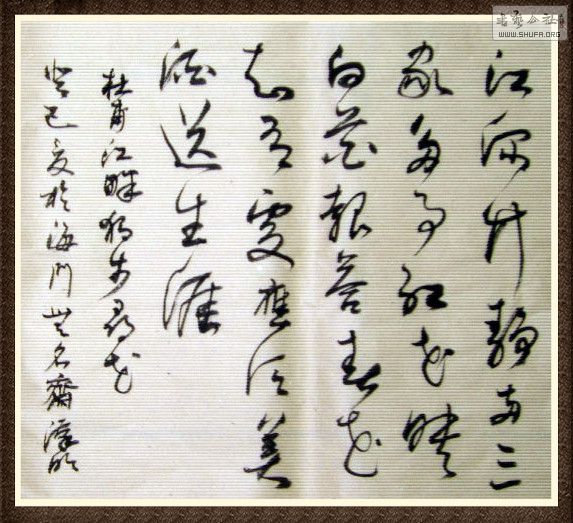 書藝公社
WWW.SHUFA.ORG
江深竹靜兩三
家多事紅花映
白花報答春光
知有處應須美
酒送生涯
杜甫江畔獨步尋花
癸巳夏於海門無名齋